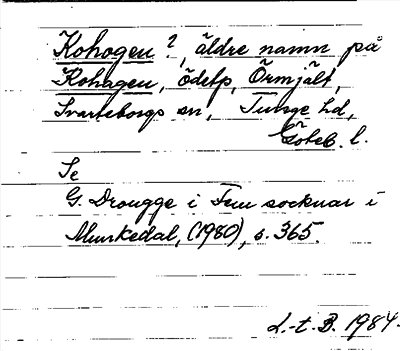 Kohogen?, äldre namn på
Kohagen, ödelp, Örmjält,
Svarteborgs sn, Tunge hd,
Göteb. l.
Se
G. Drougge i Fem socknar i
Munkedal, (1980), s. 365.
L.-t. B. 1984.